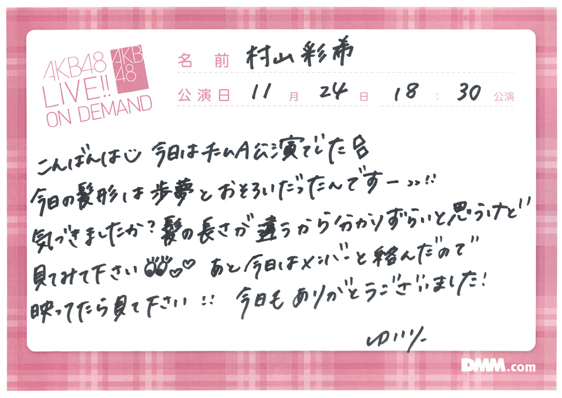 AKB48
LIVE!!
ON DEMAND
AKB
48
名 前 村山彩希
公演日 11 月 24 日 18 : 30 公演
こんばんは 今日はチームA公演でした
今日の髪形は歩夢とおそろいだったんですー!!
気づきましたか?髪の長さが違うから分かりずらいと思うけど
見てみて下さい あと今日はメンバーと絡んだので
映ってたら見て下さい!! 今日もありがとうございました!
ゆいりー
DMM.com